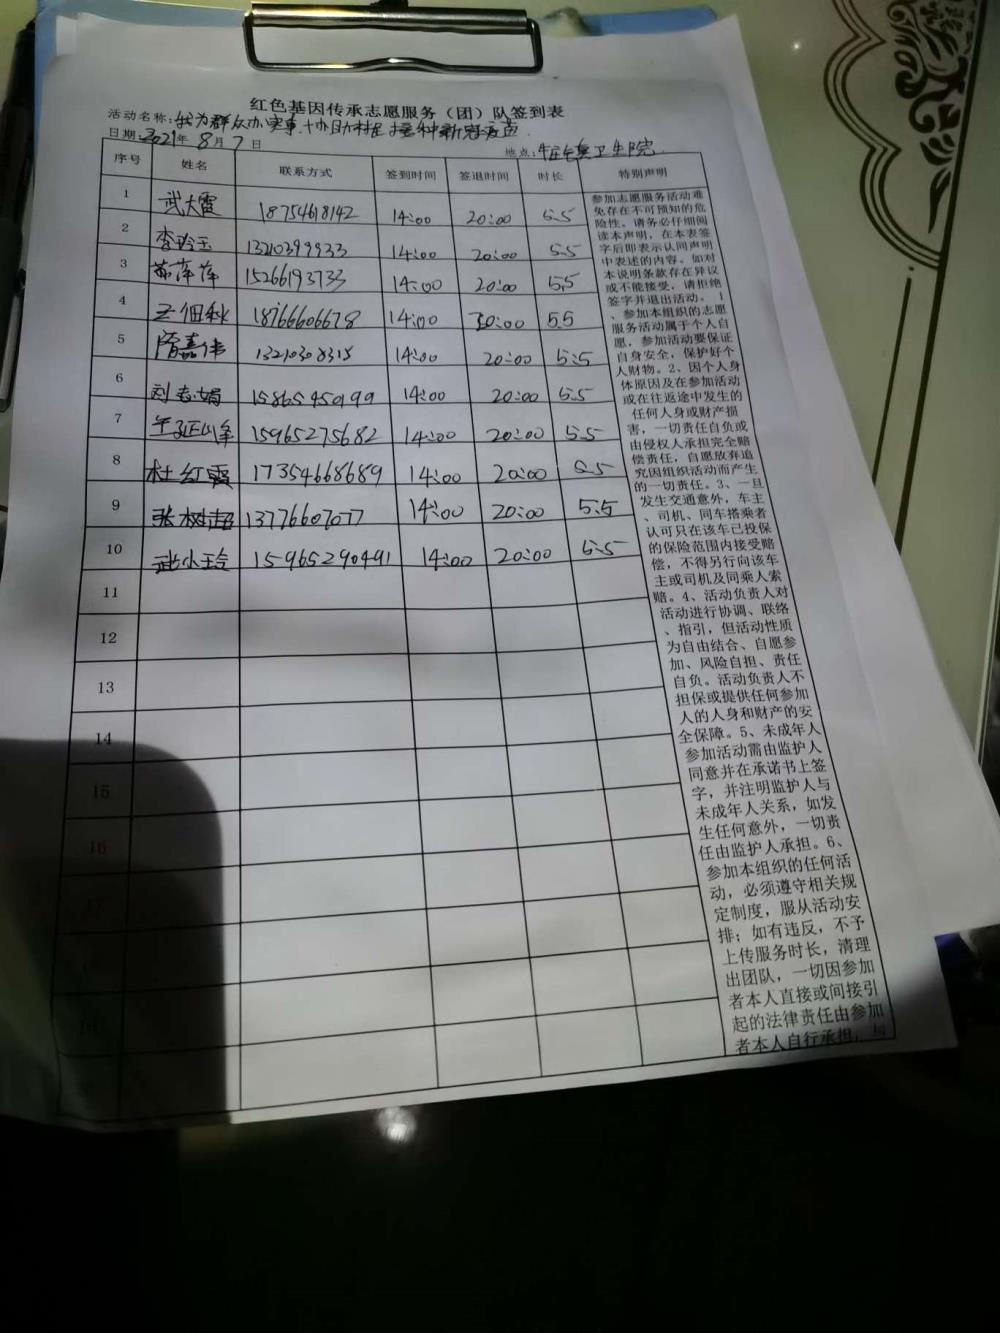 红色基因传承志愿服务（团）队签到表
活动名称：我为群众办实事 协助村民接种新冠疫苗
日期：2021年8月7日 地点：牛庄镇卫生院
序号 姓名 联系方式 签到时间 签退时间 时长 特别声明
1 武大雷 18754618142 14:00 20:00 5.5
2 李玲玉 14:00 20:00 5.5
3 萍萍 15266193733 14:00 20:00 5.5
4 王佃秋 18766606678 14:00 20:00 5.5
5 隋嘉伟 13210308315 14:00 20:00 5.5
6 刘志娟 15865450199 14:00 20:00 5.5
7 15965275682 14:00 20:00 5.5
8 杜红霞 17354668689 14:00 20:00 5.5
9 张树超 13776607077 14:00 20:00 5.5
10 武小玲 15965290491 14:00 20:00 5.5
11
12
13
14
15
16
17
参加志愿服务活动难
免存在不可预知的危
险性。请务必仔细阅
读本声明，在本表签
字后即表示认同声明
中表述的内容。如对
本说明条款存在异议
或不能接受，请拒绝
签字并退出活动。1
、参加本组织的志愿
服务活动属于个人自
愿，参加活动要保证
自身安全，保护好个
人财物。2、因个人身
体原因及在参加活动
或在往返途中发生的
任何人身或财产损
害，一切责任自负或
由侵权人承担完全赔
偿责任，自愿放弃追
究因组织活动而产生
的一切责任。3、一旦
发生交通意外，车主
、司机、同车搭乘者
认可只在该车已投保
的保险范围内接受赔
偿，不得另行向该车
主或司机及同乘人索
赔。4、活动负责人对
活动进行协调、联络
、指引，但活动性质
为自由结合、自愿参
加、风险自担、责任
自负。活动负责人不
担保或提供任何参加
人的人身和财产的安
全保障。5、未成年人
参加活动需由监护人
同意并在承诺书上签
字，并注明监护人与
未成年人关系，如发
生任何意外，一切责
任由监护人承担。6、
参加本组织的任何活
动，必须遵守相关规
定制度，服从活动安
排；如有违反，不予
上传服务时长，清理
出团队，一切因参加
者本人直接或间接引
起的法律责任由参加
者本人自行承担，与